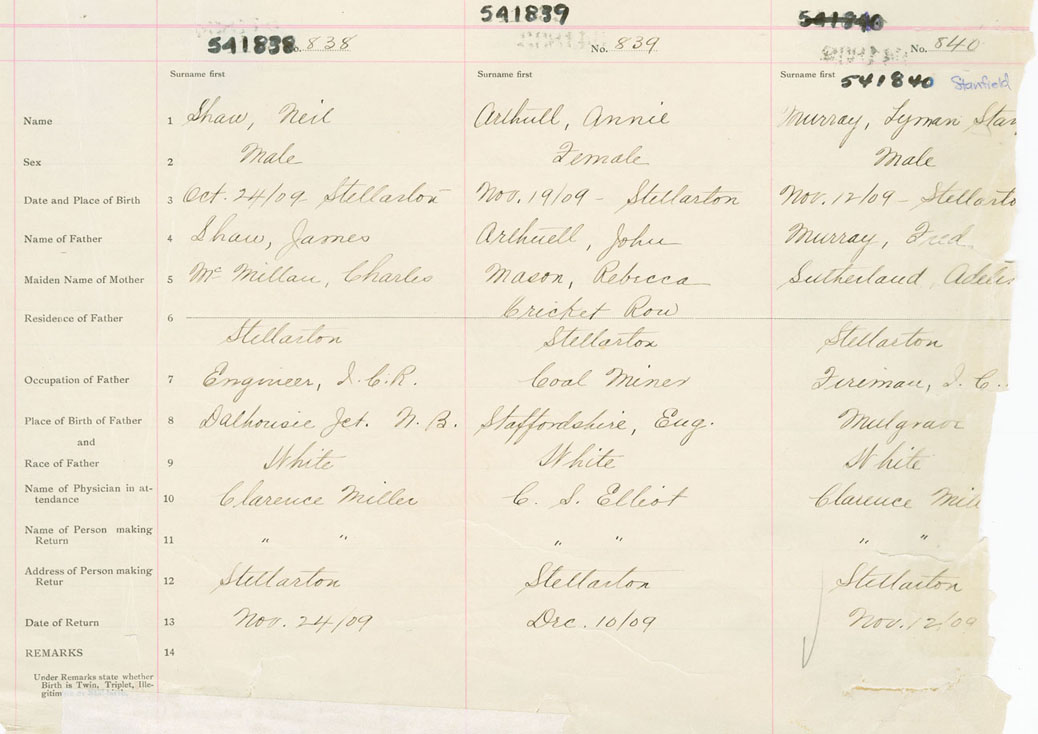 541839 541840
541838 No. 838 No. 839 No. 840
Surname first Surname first Surname first 541840 Stanfield
Name 1 Shaw, Neil Arthull, Annie Murray, Lyman Stan
Sex 2 Male Female Male
Date and Place of Birth 3 Oct. 24/09 Stellarton Nov. 19/09 - Stellarton Nov. 12/09 - Stellarto
Name of Father 4 Shaw, James Arthuell, John Murray, Fred
Maiden Name of Mother 5 Mc Millan, Charles Mason, Rebecca Sutherland,
Cricket Row
Residence of Father 6
Stellarton Stellarton Stellarton
Occupation of Father 7 Engineer, I.C.R. Coal Miner Fireman, I. C.
Place of Birth of Father 8 Dalhousie Jct. N. B. Staffordshire, Eng. Mulgrave
and
Race of Father 9 White White White
Name of Physician in at-
tendance 10 Clarence Miller C. S. Elliot Clarence Mill
Name of Person making
Return 11 " " " " " "
Address of Person making
Retur 12 Stellarton Stellarton Stellarton
Date of Return 13 Nov. 24/09 Dec. 10/09 Nov. 12/09
REMARKS 14
Under Remarks state whether
Birth is Twin, Triplet, Ille-
gitim